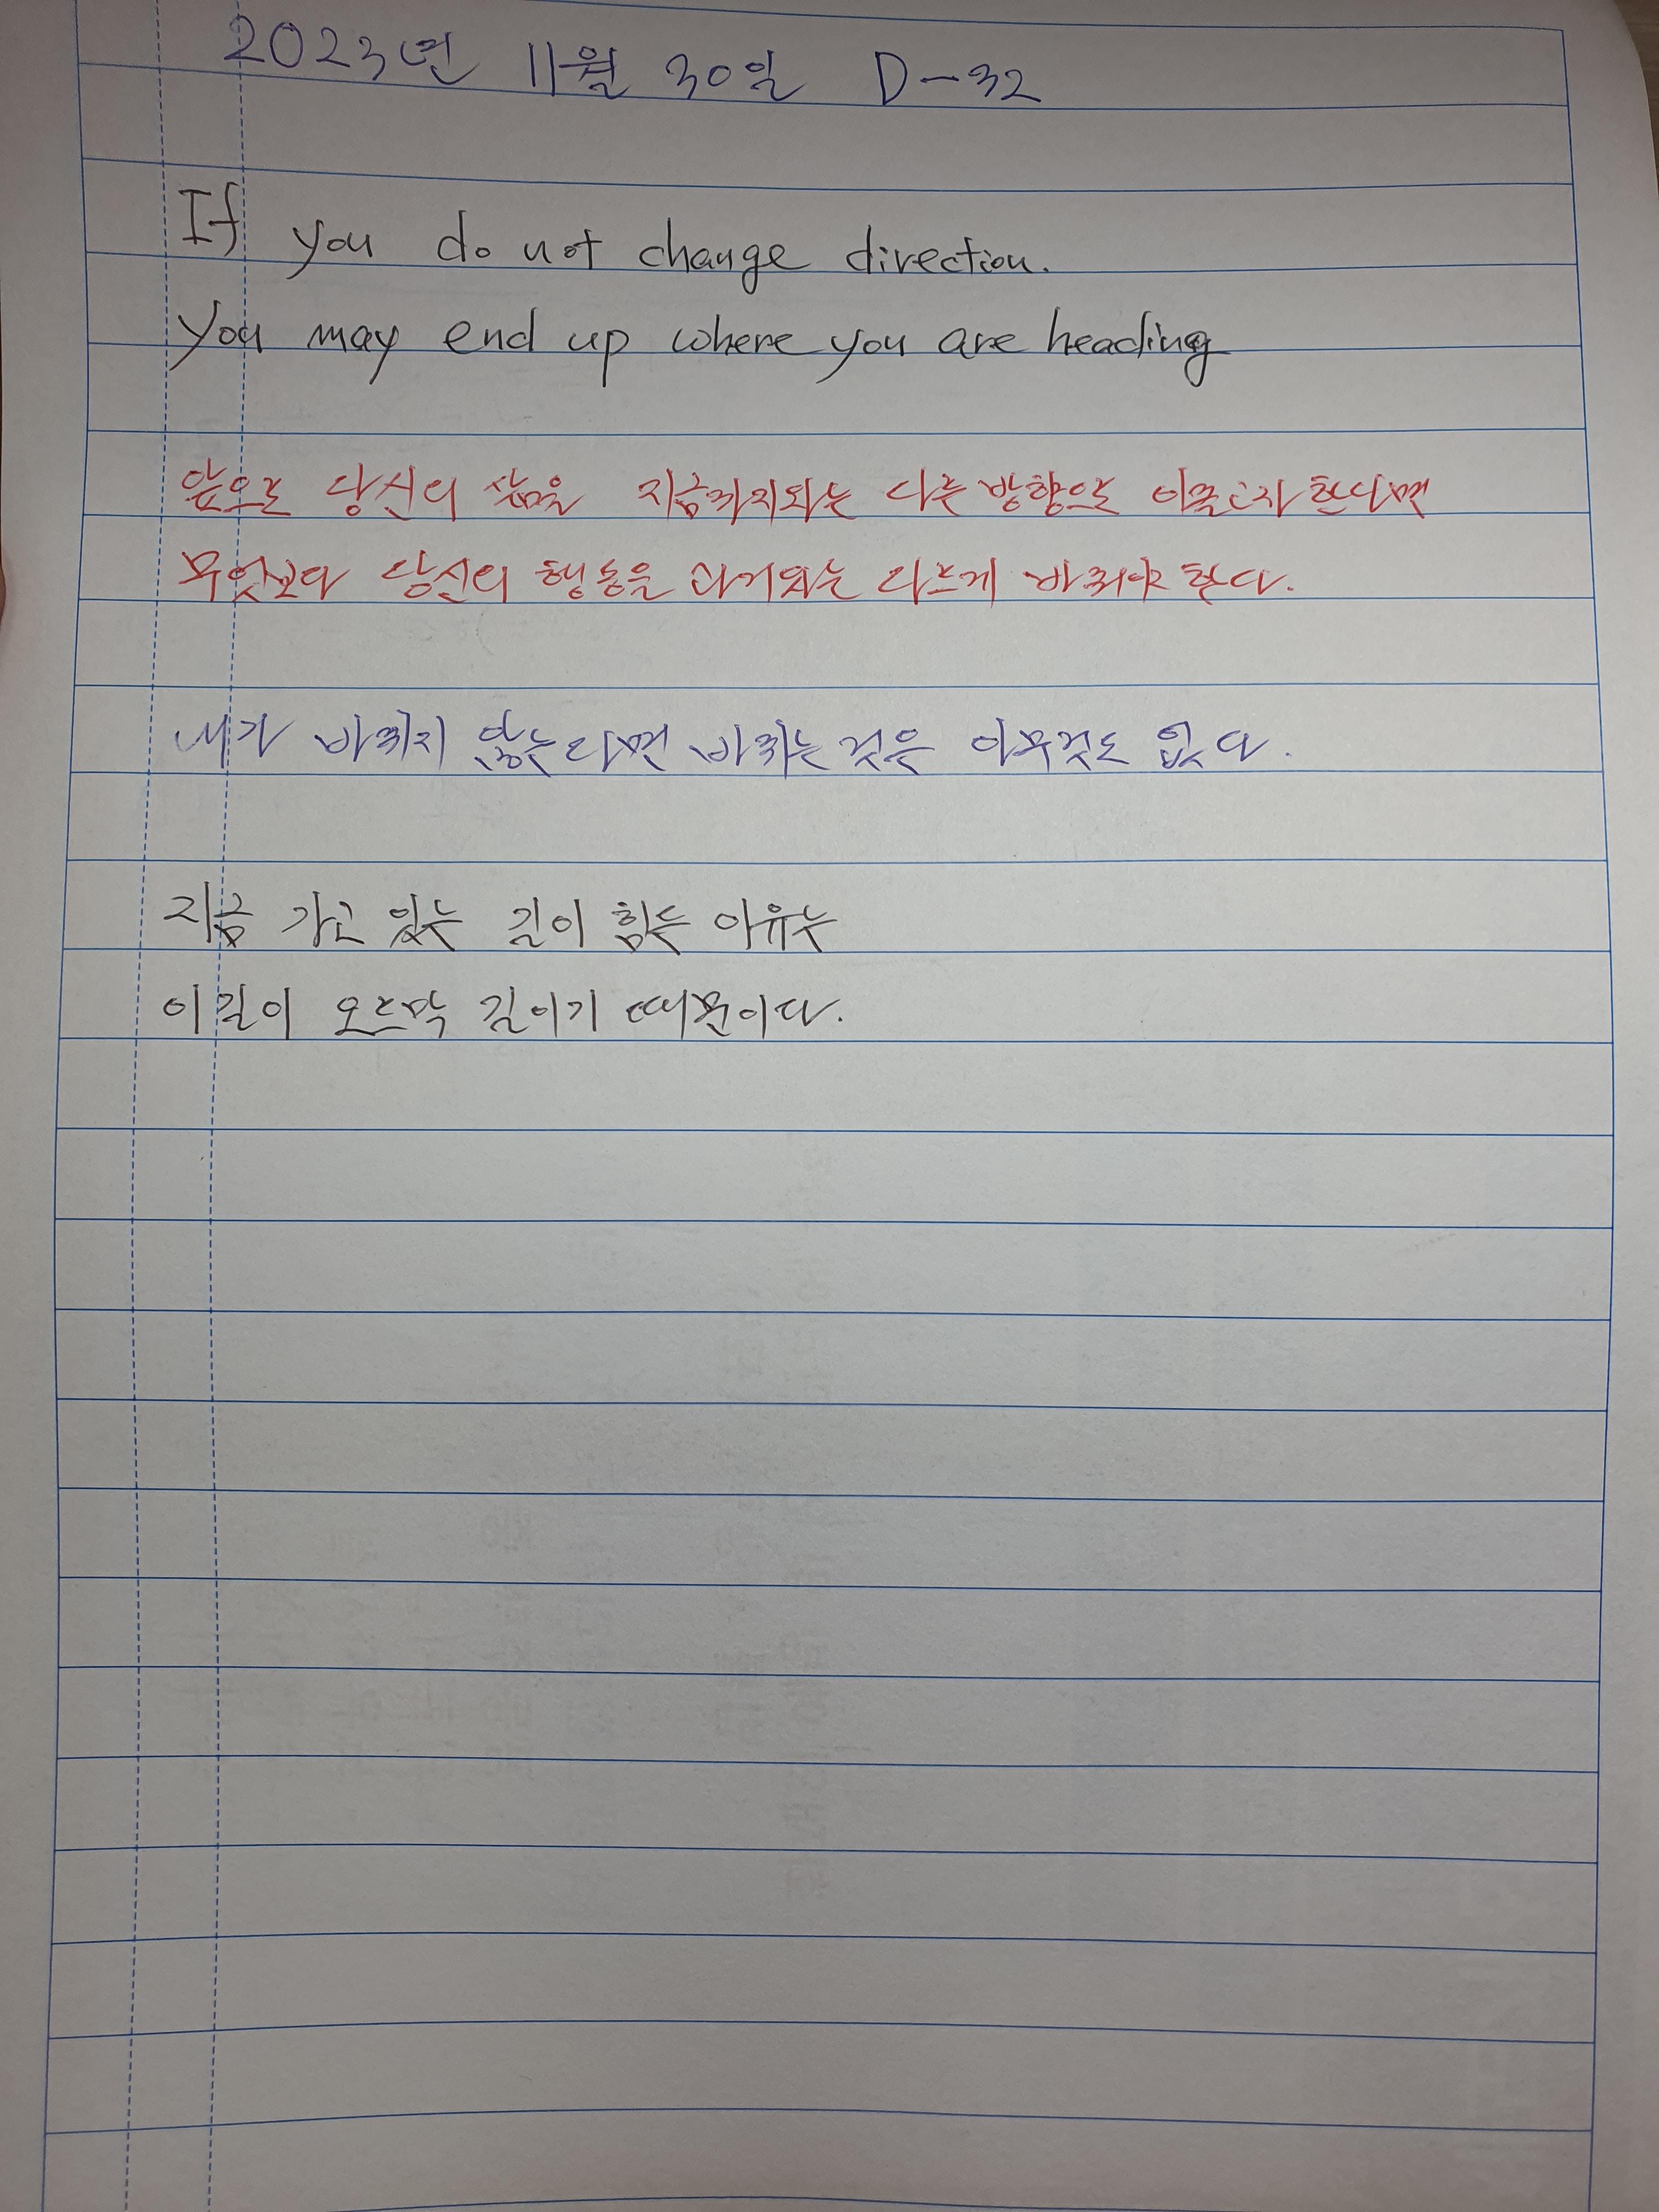 2023년 11월 30일 D-32
If you do not change direction.
You may end up where you are heading
앞으로 당신의 삶을 지금까지와는 다른 방향으로 이끌고자 한다면
무엇보다 당신의 행동을 과거와는 다르게 바꿔야 한다.
내가 바뀌지 않는다면 바뀌는 것은 아무것도 없다.
지금 가고 있는 길이 힘든 이유는
이 길이 오르막 길이기 때문이다.